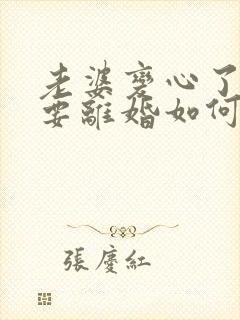 老婆变心了
要離婚如何
張慶紅